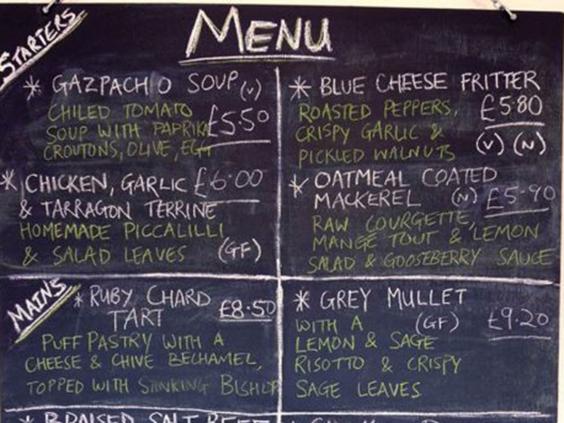 MENU
STARTERS
* GAZPACHO SOUP (V)
CHILED TOMATO
SOUP WITH PAPRIKA £5.50
CROUTONS, OLIVE, EGG
* BLUE CHEESE FRITTER
ROASTED PEPPERS, £5.80
CRISPY GARLIC &
PICKLED WALNUTS (V) (N)
* CHICKEN, GARLIC £6.00
& TARRAGON TERRINE
HOMEMADE PICCALILLI
& SALAD LEAVES (GF)
* OATMEAL COATED
MACKEREL (N) £5.90
RAW COURGETTE,
MANGE TOUT & LEMON
SALAD & GOOSEBERRY SAUCE
MAINS
* RUBY CHARD £8.50
TART
PUFF PASTRY WITH A
CHEESE & CHIVE BECHAMEL,
TOPPED WITH STINKING BISHOP
* GREY MULLET
WITH A (GF) £9.20
LEMON & SAGE
RISOTTO & CRISPY
SAGE LEAVES
* BRAISED SALT BEEF